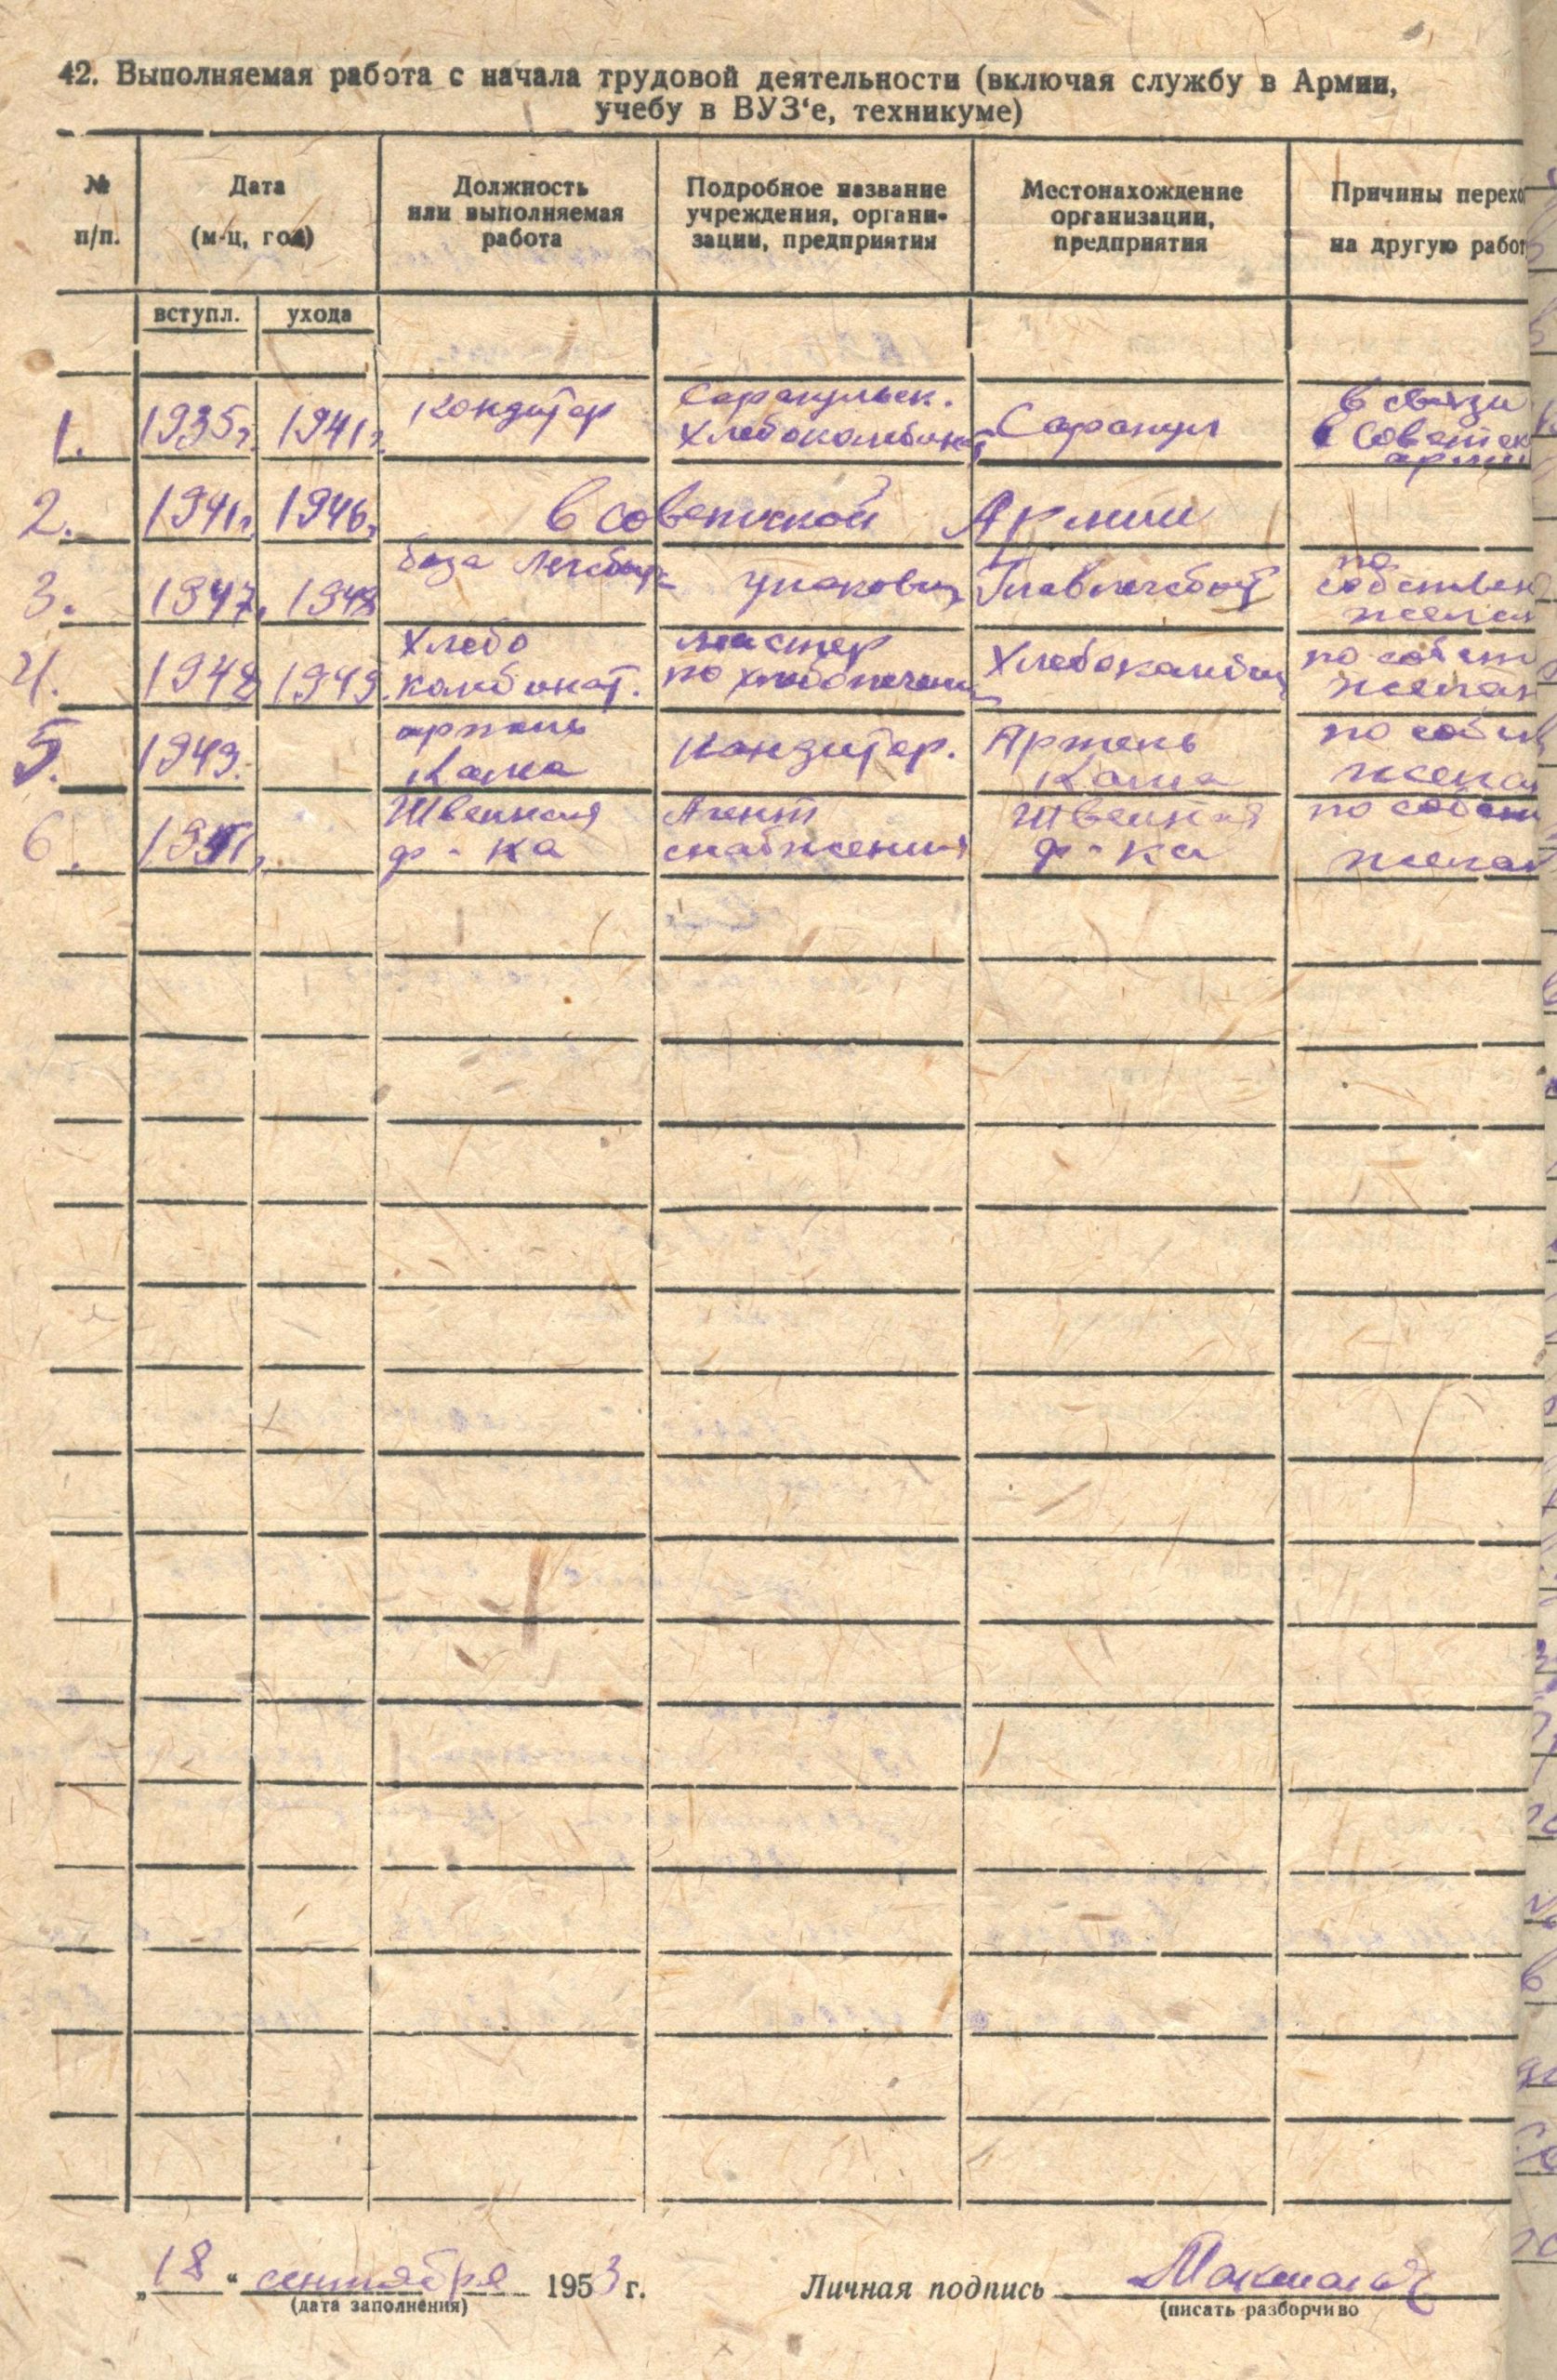 42. Выполняемая работа с начала трудовой деятельности (включая службу в Армии,
учебу в ВУЗ‘е, техникуме)
№ п/п.
Дата (м-ц, год)
Должность или выполняемая работа
Подробное название учреждения, органи-зации, предприятия
Местонахождение организации, предприятия
Причины перехо
на другую работ
вступл. ухода
1. 1935г. 1941г. кондитор Сарапульск. Хлебокомбинат Сарапул в связи в Советск арми
2. 1941г. 1946г. в советской Армии
3. 1947. 1948 база упаковщ по собствен желан
4. 1948 1949. Хлебо комбинат. мастер по хлебопечени Хлебокомбин по собст желан
5. 1949. артель Кама Кондитор. Артель Кама по собств желан
6. 1951, Швейная ф-ка Агент снабжения Швейная ф-ка по собств желан
„18“ сентября 1953 г.
(дата заполнения)
Личная подпись
(писать разборчиво